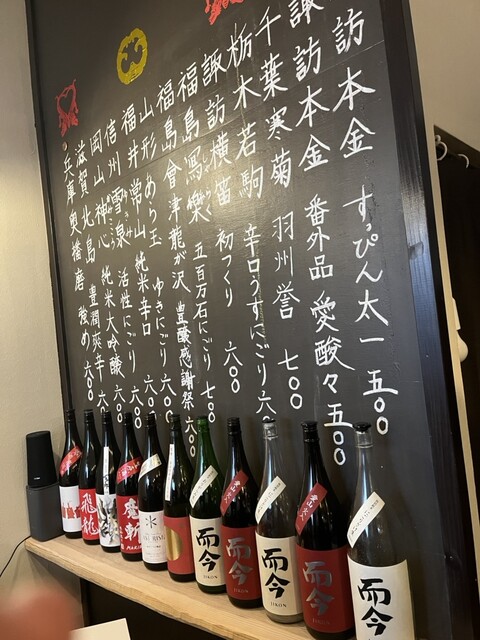 諏訪本金 すっぴん太一 五〇〇
諏訪本金 番外品 愛酸々 五〇〇
千葉寒菊 羽州誉 七〇〇
栃木若駒 辛口うすにごり 六〇
諏訪横笛 初つくり 六〇〇
福島寫樂 五百万石にごり 七〇〇
福島會津龍が沢 豊醸感謝祭 六〇〇
山形あら玉 ゆきにごり 六〇〇
福井常山 純米辛口 六〇
信州 活性にごり 六〇
岡山神心 純米大吟醸
滋賀北島 豊潤爽辛 六〇〇
兵庫奥播磨 強め 六〇〇
飛龍
魔斬
而今
JIKON
而今
而今
JIKON
而今
JIKON
而今